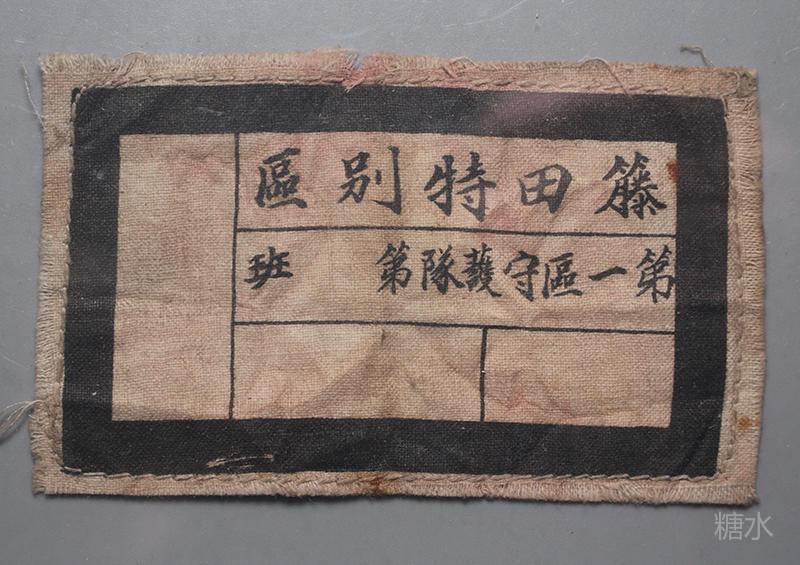 籐田特別區
第一區守護隊第　班
糖水